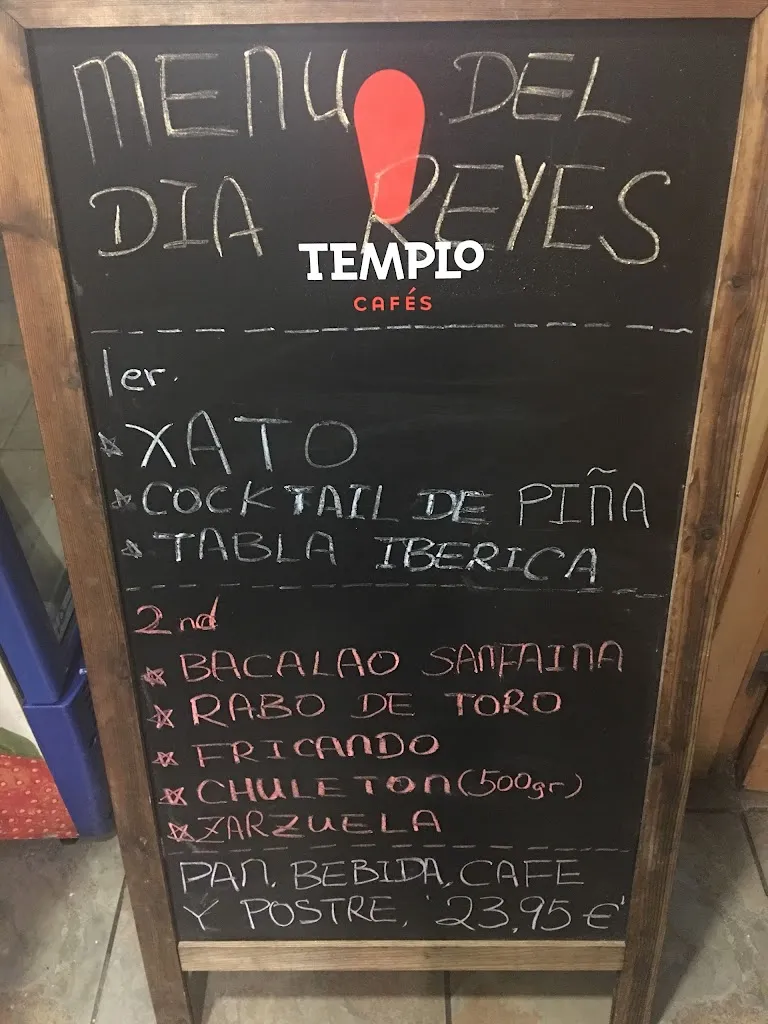 MENU DEL
DIA REYES
TEMPLO
CAFÉS
1er.
XATO
COCKTAIL DE PIÑA
TABLA IBERICA
2nd
BACALAO SANFAINA
RABO DE TORO
FRICANDO
CHULETON (500gr)
ZARZUELA
PAN, BEBIDA, CAFE
Y POSTRE, '23,95€'